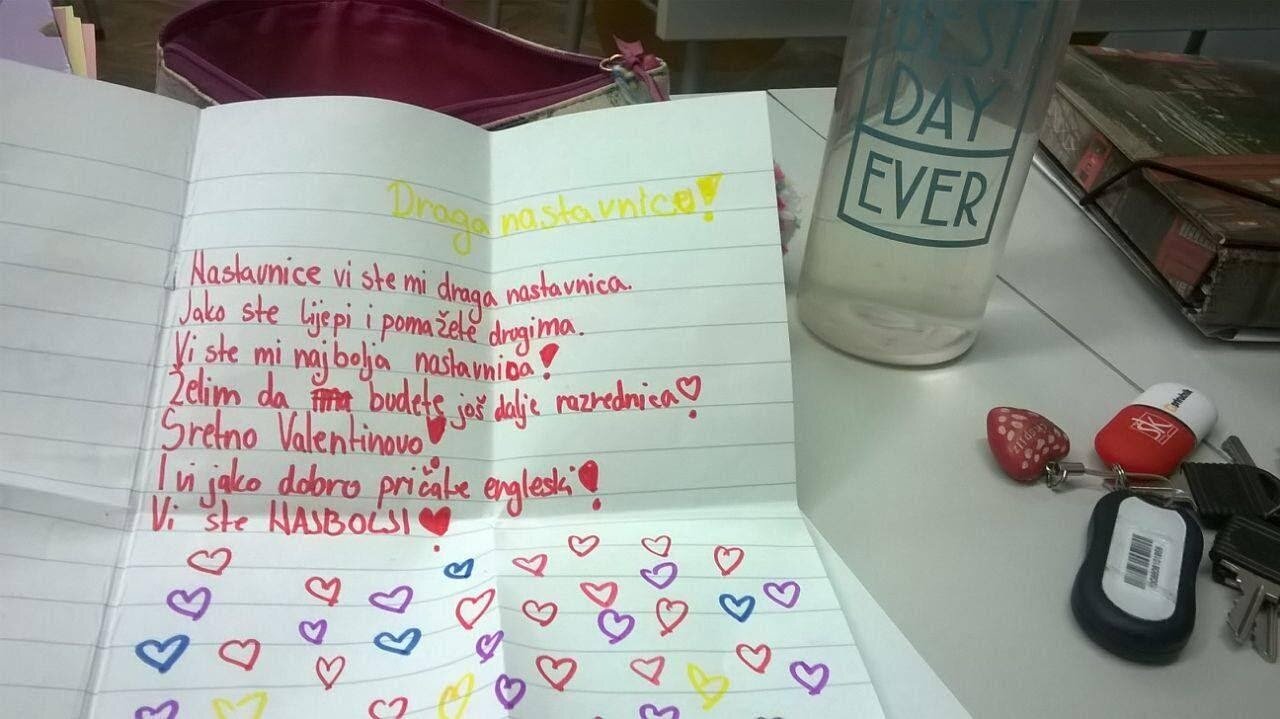 Draga nastavnice!
Nastavnice vi ste mi draga nastavnica.
Jako ste lijepi i pomažete drugima.
Vi ste mi najbolja nastavnica!
Želim da budete još dalje razrednica!
Sretno Valentinovo!
I vi jako dobro pričate engleski!
Vi ste NAJBOLJI!
BEST
DAY
EVER
ŠK